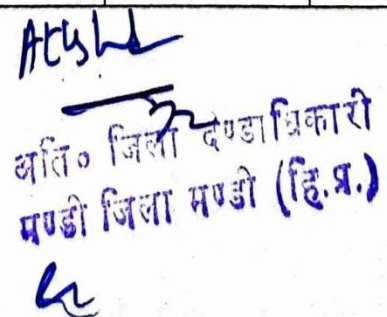 अति० जिला दण्डाधिकारी
मण्डी जिला मण्डी (हि.प्र.)